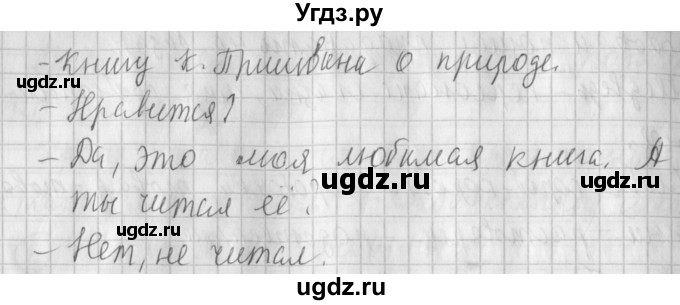 Угдз.ру
- Книгу К. Пришвина о природе.
- Нравится?
- Да, это моя любимая книга. А
ты читал её?
- Нет, не читал.
ugdz.ru
ugdz.ru
ugdz.ru
ugdz.ru
ugdz.ru
ugdz.ru
ugdz.ru